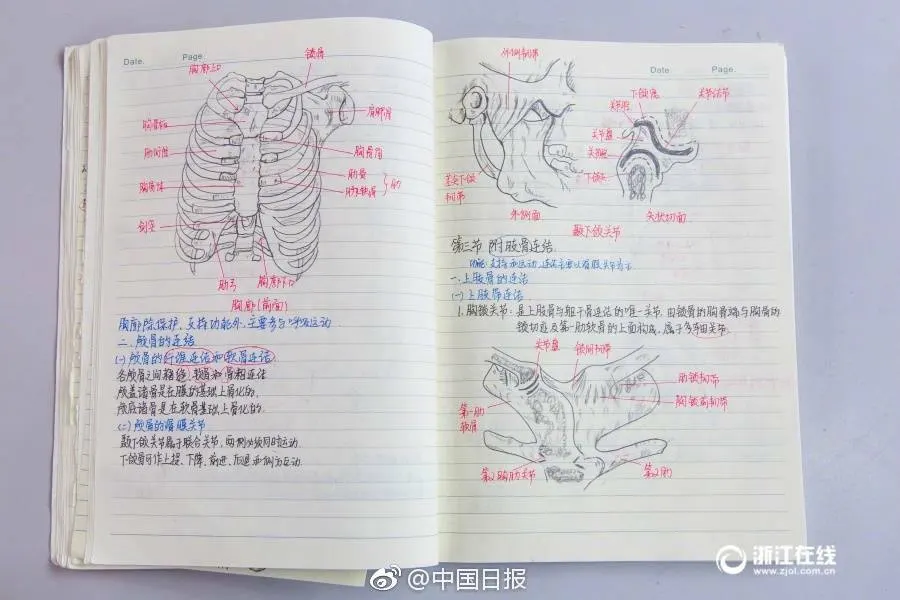 Date.
Page.
锁骨
胸廓上口
肩胛骨
胸骨柄
胸骨角
肋间隙
肋骨
肋软骨
肋
胸骨体
剑突
肋弓
胸廓下口
胸廓(前面)
胸廓除保护、支持功能外,主要参与呼吸运动
二、颅骨的连结
(一)颅骨的纤维连结和软骨连结
各颅骨之间借缝、软骨和骨相连结
颅盖诸骨是在膜的基础上骨化的,
颅底诸骨是在软骨基础上骨化的。
(二)颅骨的滑膜关节
颞下颌关节属于联合关节,两侧必须同时运动.
下颌骨可作上提、下降、前进、后退和侧方运动.
Date
Page.
外侧韧带
下颌窝
关节结节
关节腔
关节盘
关节囊
下颌头
茎突下颌
韧带
外侧面
矢状切面
颞下颌关节
第三节 附肢骨连结
功能:支持和运动,连结主要以滑膜关节为主
一、上肢骨的连结
(一)上肢带连结
1. 胸锁关节:是上肢骨与躯干骨连结的唯一关节.由锁骨的胸骨端与胸骨的
锁切迹及第一肋软骨的上面构成,属于多轴关节.
关节盘
锁间韧带
肋锁韧带
胸锁前韧带
第一肋
软骨
第2胸肋关节
第2肋
@中国日报
浙江在线
www.zjol.com.cn